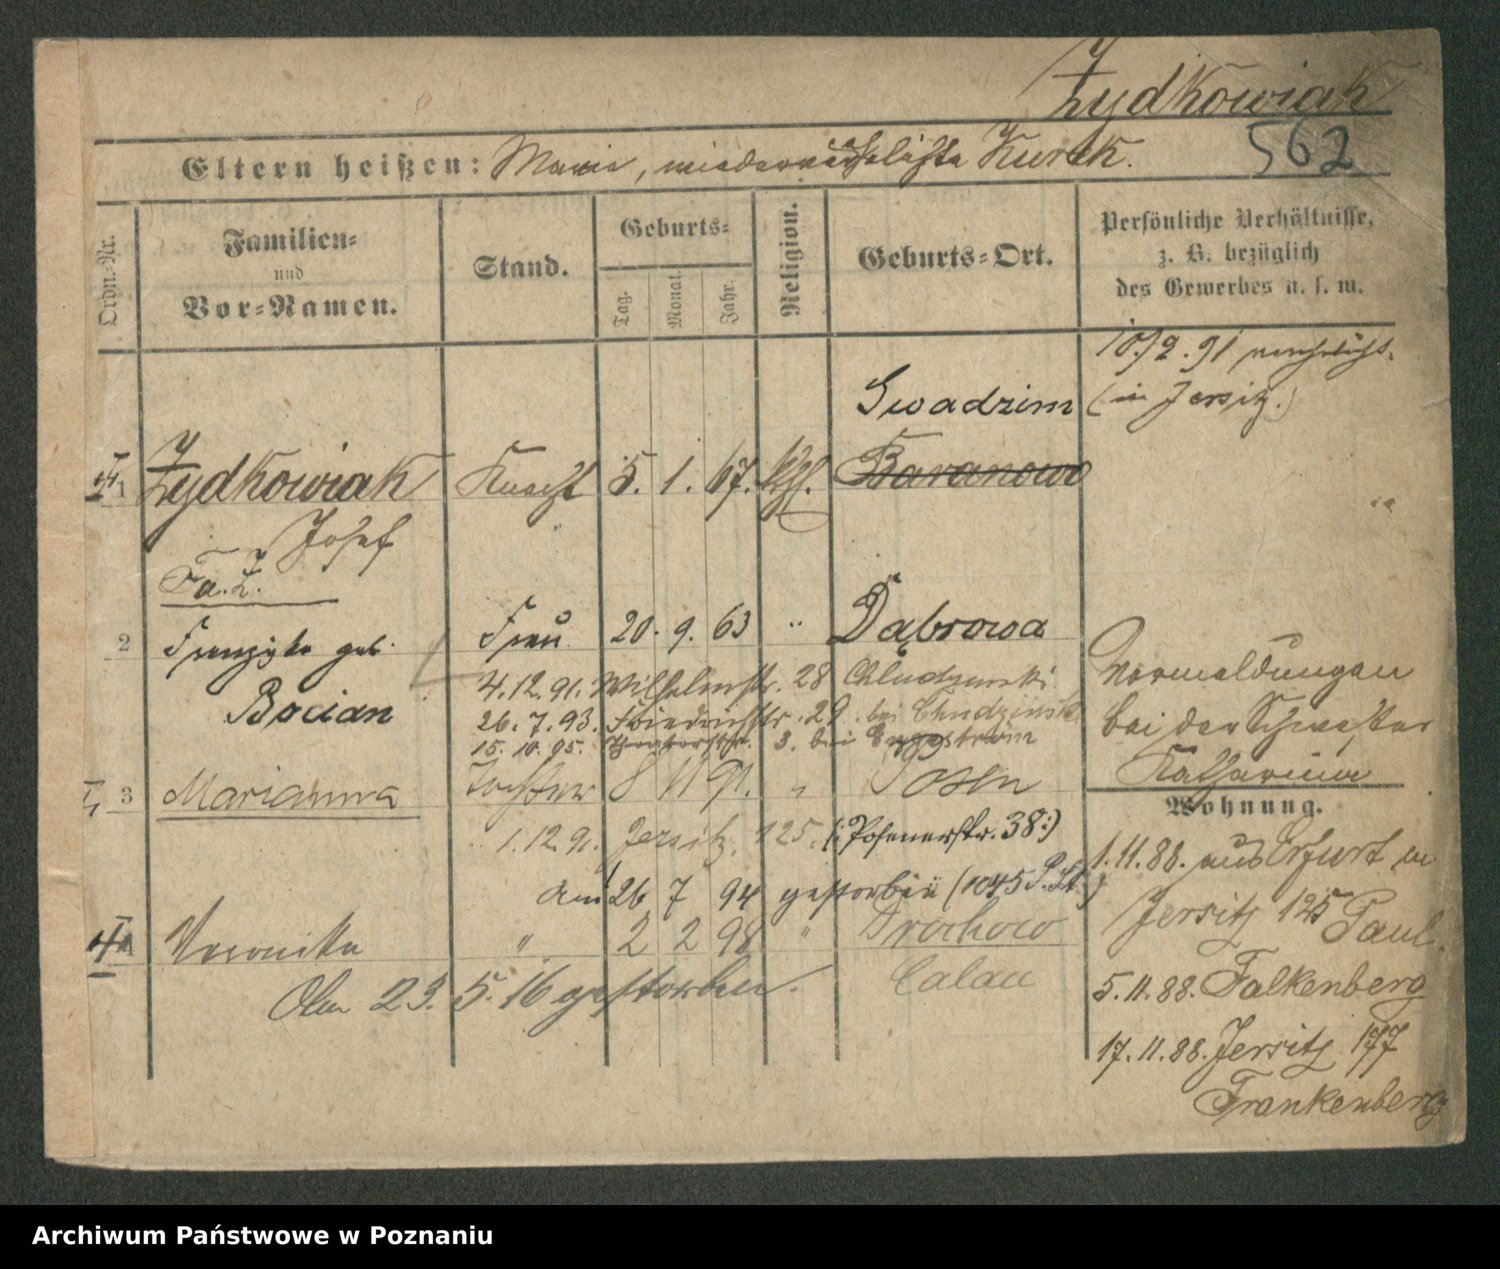 Żydkowiak
562
Eltern heißen: Maria, wiederverehelichte Kurek.
Ordn.-Nr.
Familien-
und
Vor-Namen.
Stand.
Geburts-
Tag.
Monat
Jahr.
Religion.
Geburts-Ort.
Persönliche Verhältnisse,
z. B. bezüglich
des Gewerbes u. s. w.
10/2.91 verehelicht.
(in Jersitz.)
Swadzim
1 Żydkowiak Knecht 5. 1. 67. kth. Baranowo
Josef
Fa. Ż.
2 Franziska geb. Frau 20. 9. 63 " Dąbrowa
Bocian
4.12.91. Wilhelmstr. 28 Chludzinski
26.7.93. Friedrichstr. 29. bei Chudzinski
15.10.95. Theaterstr. 3. bei Enggström
Vormeldungen
bei der Schwester
Katharina
3 Marianna Tochter 8 11 91. " Posen
Wohnung.
1.12.91. Jersitz. 125. (: Posenerstr. 38:)
am 26 7 94 gestorben (1045 P. St.)
4 Veronika " 2 2 98 "
Calau
Am 23. 5. 16 gestorben.
1.11.88. aus Erfurt in
Jersitz 125 Paul.
5.11.88. Falkenberg
17.11.88. Jersitz 177
Frankenberg
Archiwum Państwowe w Poznaniu